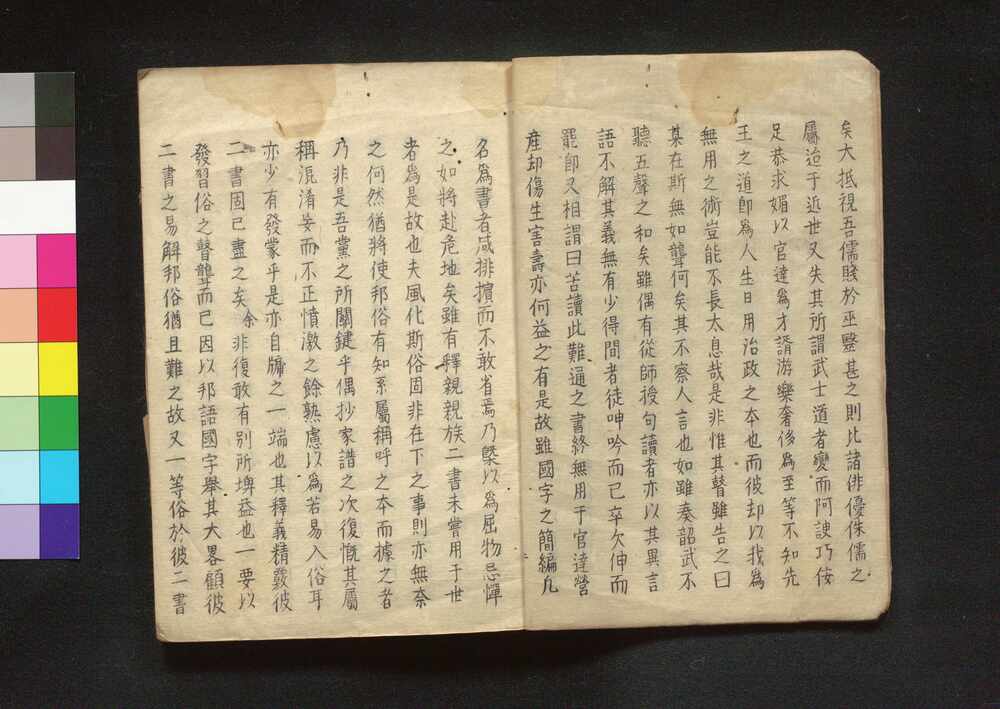 矣大抵視吾儒賤於巫毉甚之則比諸俳優侏儒之
屬迨于近世又失其所謂武士道者變而阿諛巧佞
足恭求媚以官達爲才諝游樂奢侈爲至等不知先
王之道卽爲人生日用治政之本也而彼却以我爲
無用之術豈能不長太息哉是非惟其瞽雖告之曰
某在斯無如聾何矣其不察人言也如雖奏韶武不
聽五聲之和矣雖偶有從師授句讀者亦以其異言
語不解其義無有少得間者徒呻吟而已卒欠伸而
罷卽又相謂曰苦讀此難通之書終無用于官達營
產却傷生害壽亦何益之有是故雖國字之簡編凡
名爲書者咸排擯而不敢省焉乃槩以爲屈物忌憚
之如將赴危地矣雖有釋親親族二書未嘗用于世
者爲是故也夫風化斯俗固非在下之事則亦無奈
之何然猶將使邦俗有知系屬稱呼之本而據之者
乃非是吾黨之所關鍵乎偶抄家譜之次復慨其屬
稱混淆妄而不正憤激之餘熟慮以爲若易入俗耳
亦少有發蒙乎是亦自牖之一端也其釋義精覈彼
二書固已盡之矣余非復敢有別所埤益也一要以
發習俗之瞽聾而已因以邦語國字舉其大畧顧彼
二書之易解邦俗猶且難之故又一等俗於彼二書